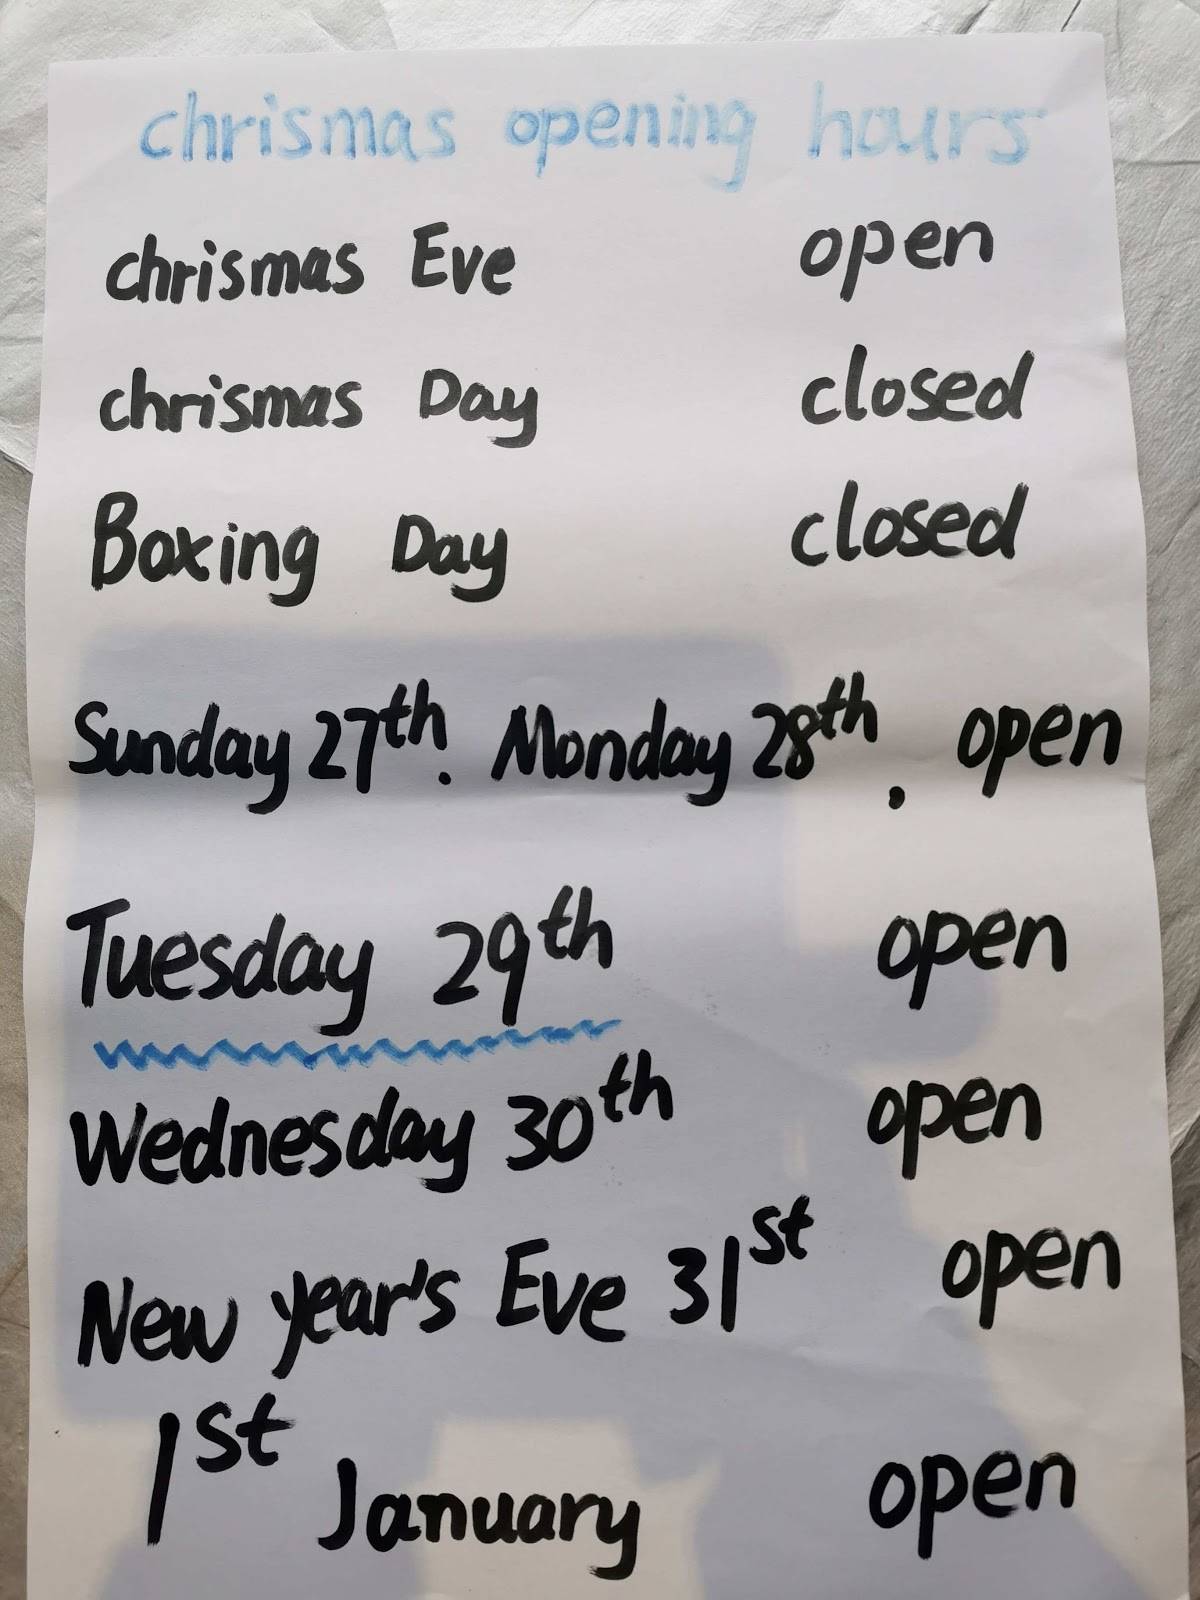 chrismas opening hours
chrismas Eve open
chrismas Day closed
Boxing Day closed
Sunday 27th. Monday 28th. open
Tuesday 29th open
Wednesday 30th open
New year's Eve 31st open
1st January open